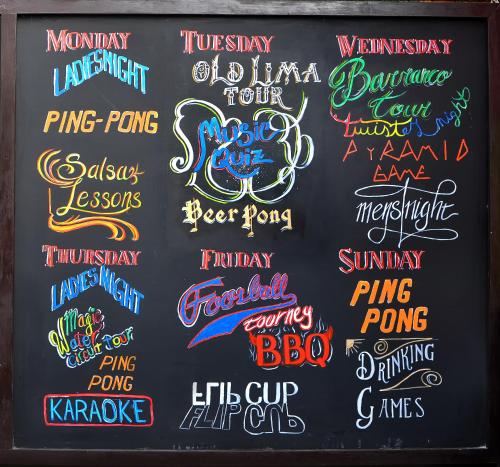 MONDAY
LADIES NIGHT
PING-PONG
Salsa
Lessons
TUESDAY
OLD LIMA
TOUR
Music
Quiz
Beer Pong
WEDNESDAY
Barranco
tour
twisted night
PYRAMID
GAME
mens night
THURSDAY
LADIES NIGHT
Magic
Water
Circuit Tour
PING
PONG
KARAOKE
FRIDAY
Foosball
tourney
BBQ
FLIP CUP
FLIP CUP
SUNDAY
PING
PONG
DRINKING
GAMES